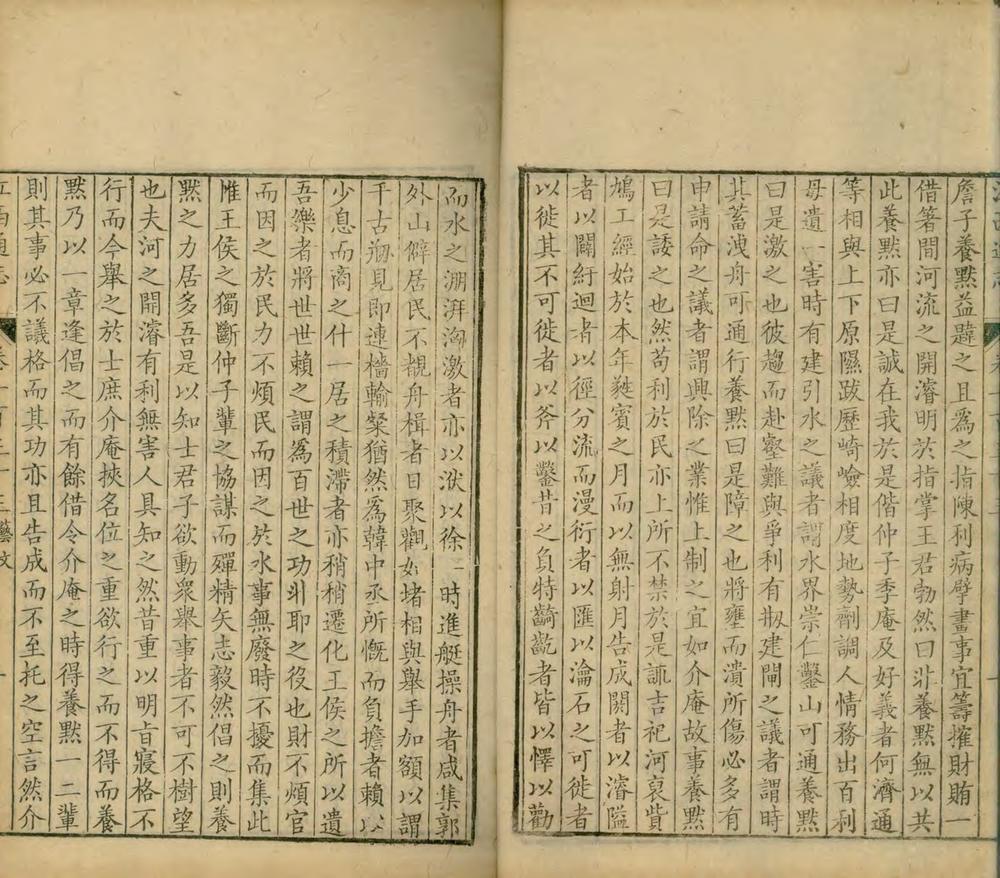 詹子養默益韙之且爲之指陳利病擘畫事宜籌摧財賄一
借箸間河流之開濬明於指掌王君勃然曰非養默無以共
此養默亦曰是誠在我於是偕仲子季庵及好義者何濟通
等相與上下原隰跋歷崎嶮相度地勢劑調人情務出百利
毋遺一害時有建引水之議者謂水界崇仁鑿山可通養默
曰是激之也彼趨而赴壑難與爭利有叛建閘之議者謂時
其蓄洩舟可通行養默曰是障之也將壅而潰所傷必多有
申請命之議者謂興除之業惟上制之宜如介庵故事養默
曰是諉之也然苟利於民亦上所不禁於是諏吉祀河裒貲
鳩工經始於本年蕤賓之月而以無射月告成閼者以濬隘
者以闢紆迴者以徑分流而漫衍者以匯以瀹石之可徙者
以徙其不可徙者以斧以鑿昔之負特齮齕者皆以懌以勸
而水之淜湃洶激者亦以洑以徐一時進艇操舟者咸集郭
外山僻居民不覩舟楫者日聚觀如堵相與舉手加額以謂
千古刱見即連檣輸粲猶然爲韓中丞所慨而負擔者賴以
少息而商之什一居之積滯者亦稍稍遷化王侯之所以遺
吾樂者將世世賴之謂爲百世之功非耶之役也財不煩官
而因之於民力不煩民而因之於水事無廢時不擾而集此
惟王侯之獨斷仲子輩之協謀而殫精矢志毅然倡之則養
默之力居多吾是以知士君子欲動衆舉事者不可不樹望
也夫河之開濬有利無害人具知之然昔重以明旨寢格不
行而今舉之於士庶介庵挾名位之重欲行之而不得而養
默乃以一章逢倡之而有餘借令介庵之時得養默一二輩
則其事必不議格而其功亦且告成而不至托之空言然介
藝文